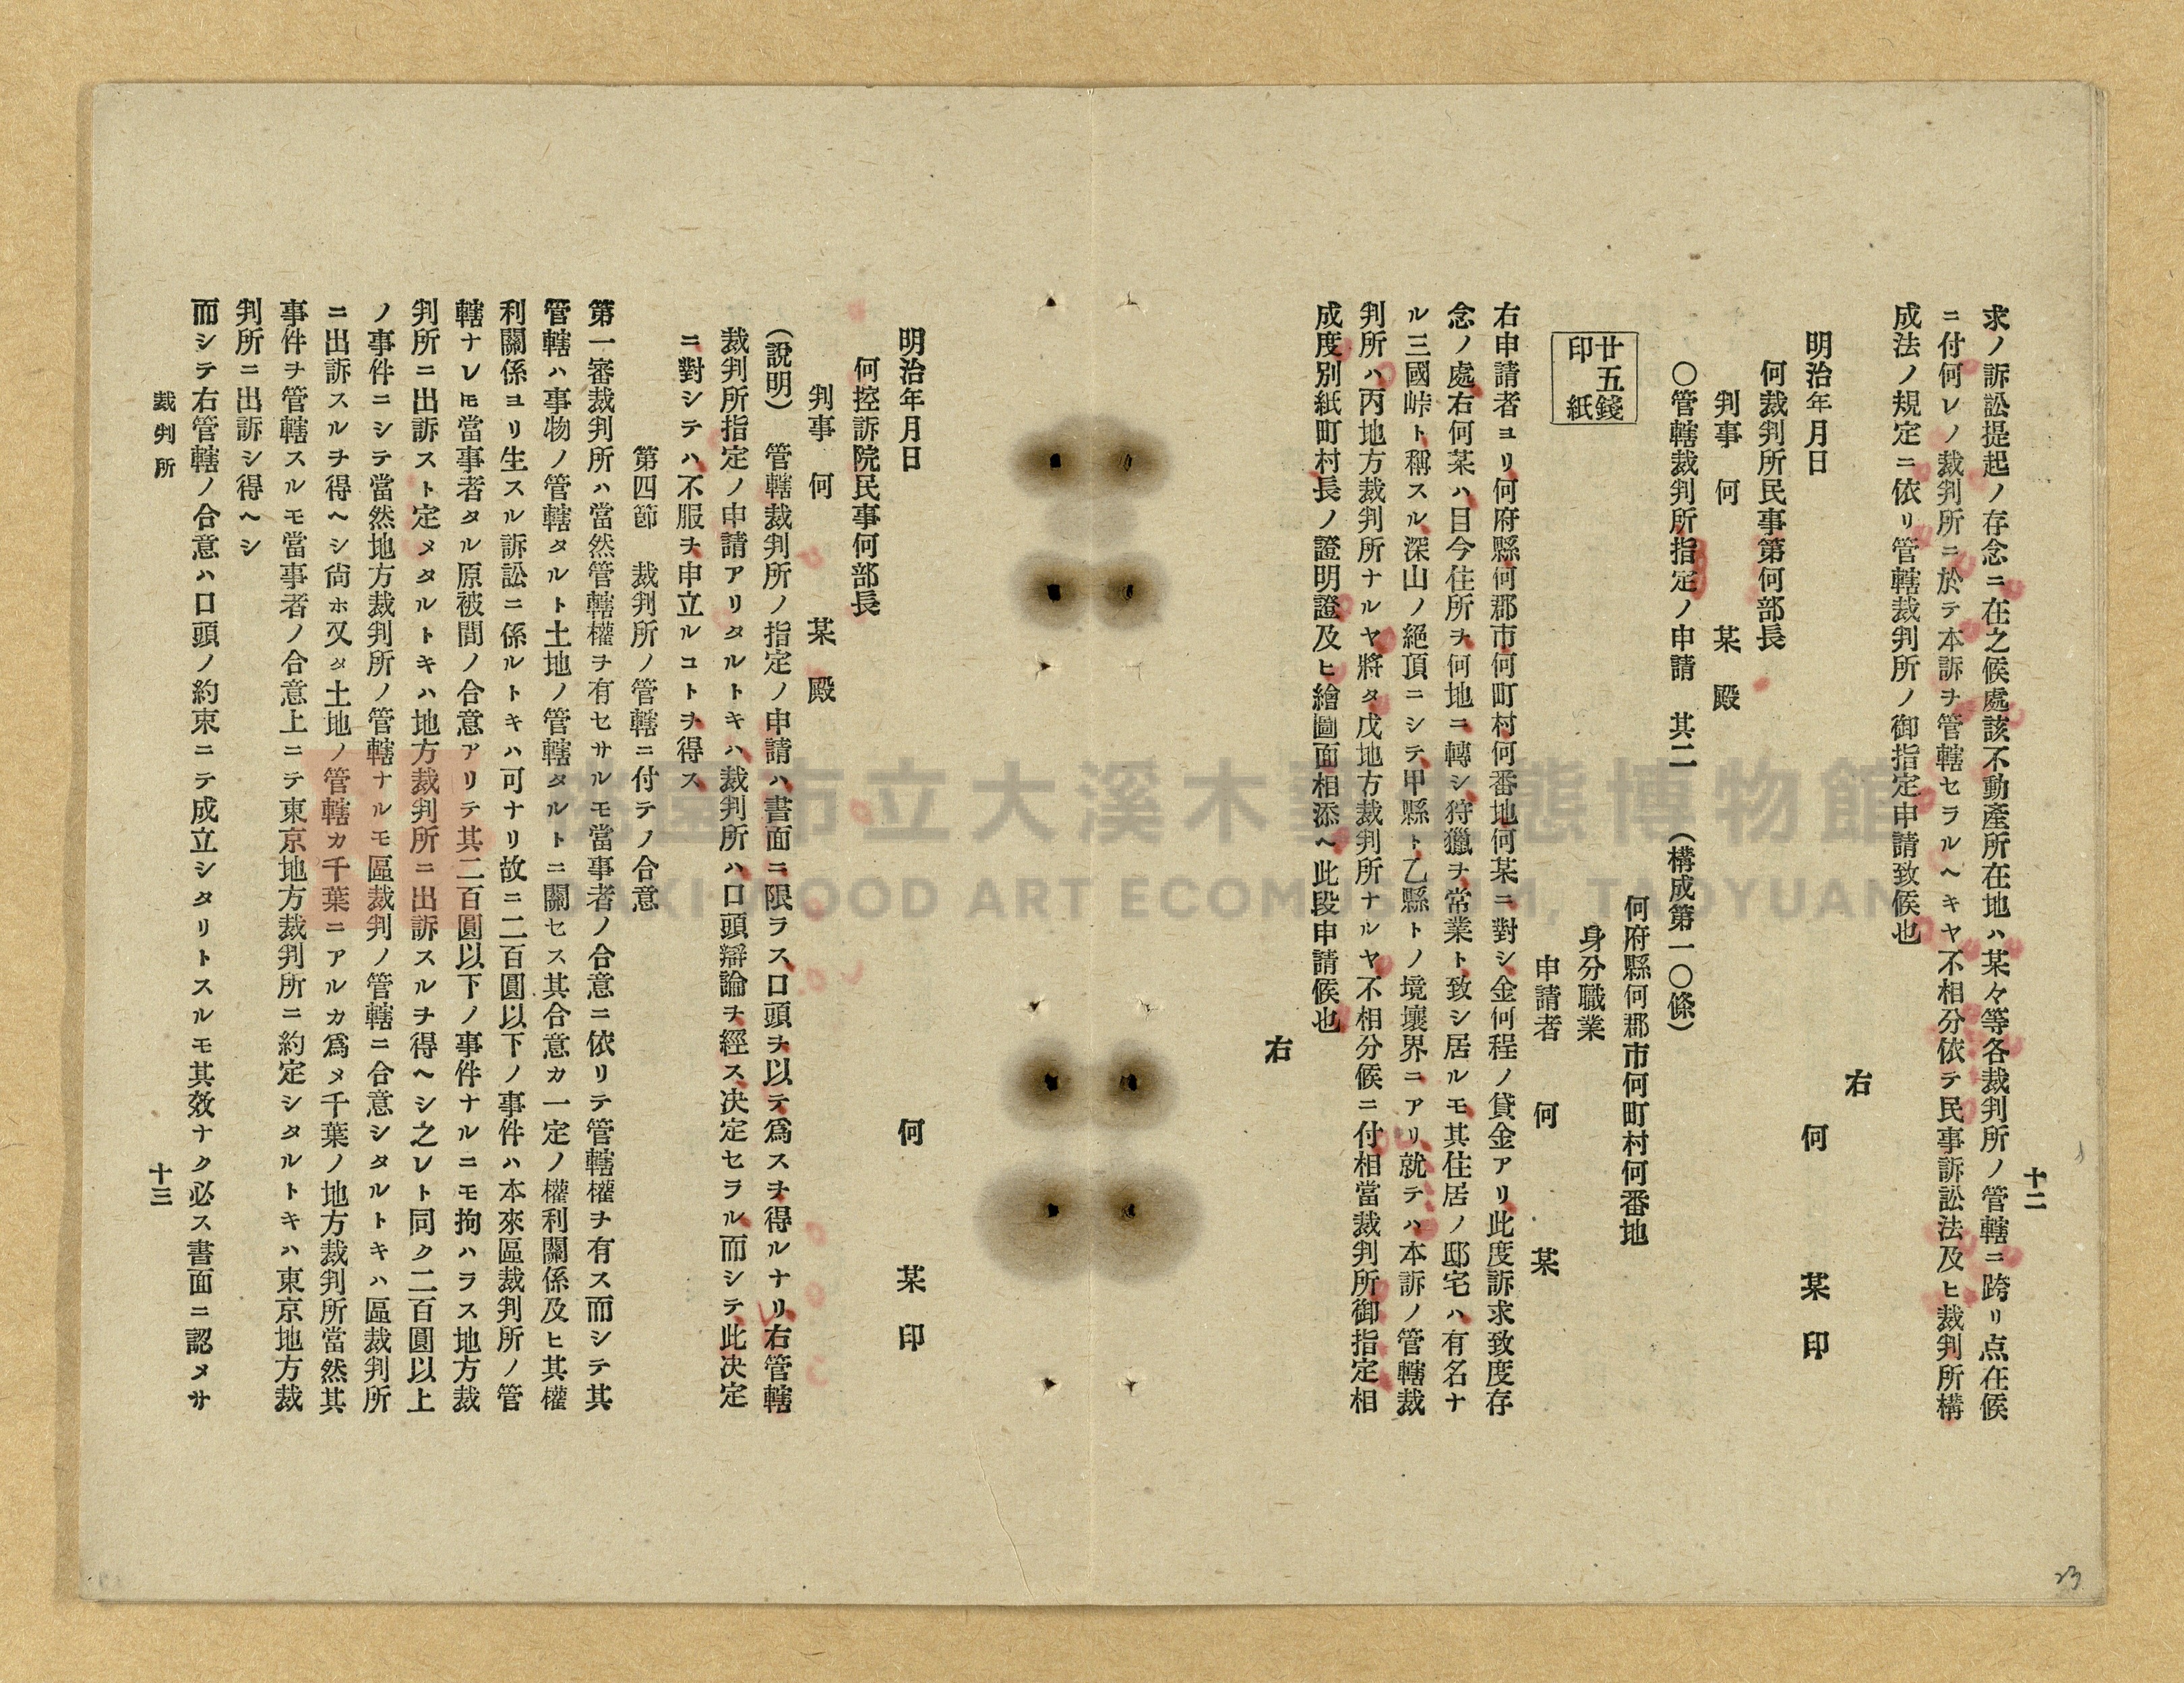 十二
求ノ訴訟提起ノ存念ニ在之候處該不動產所在地ハ某々等各裁判所ノ管轄ニ跨リ点在候
ニ付何レノ裁判所ニ於テ本訴ヲ管轄セラルヘキヤ不相分依テ民事訴訟法及ヒ裁判所構
成法ノ規定ニ依リ管轄裁判所ノ御指定申請致候也
右
明治年月日 何 某 印
何裁判所民事第何部長
判事 何 某 殿
〇管轄裁判所指定ノ申請 其二 (構成第一〇條)
何府縣何郡市何町村何番地
身分職業
申請者 何 某
廿五錢
印紙
右申請者ヨリ何府縣何郡市何町村何番地何某ニ對シ金何程ノ貸金アリ此度訴求致度存
念ノ處右何某ハ目今住所ヲ何地ニ轉シ狩獵ヲ常業ト致シ居ルモ其住居ノ邸宅ハ有名ナ
ル三國峠ト稱スル深山ノ絕頂ニシテ甲縣ト乙縣トノ境壤界ニアリ就テハ本訴ノ管轄裁
判所ハ丙地方裁判所ナルヤ將タ戊地方裁判所ナルヤ不相分候ニ付相當裁判所御指定相
成度別紙町村長ノ證明證及ヒ繪圖面相添ヘ此段申請候也
右
明治年月日 何 某 印
何控訴院民事何部長
判事 何 某 殿
(說明) 管轄裁判所ノ指定ノ申請ハ書面ニ限ラス口頭ヲ以テ爲スヲ得ルナリ右管轄
裁判所指定ノ申請アリタルトキハ裁判所ハ口頭辯論ヲ經ス决定セラル而シテ此决定
ニ對シテハ不服ヲ申立ルコトヲ得ス
第四節 裁判所ノ管轄ニ付テノ合意
第一審裁判所ハ當然管轄權ヲ有セサルモ當事者ノ合意ニ依リテ管轄權ヲ有ス而シテ其
管轄ハ事物ノ管轄タルト土地ノ管轄タルトニ關セス其合意カ一定ノ權利關係及ヒ其權
利關係ヨリ生スル訴訟ニ係ルトキハ可ナリ故ニ二百圓以下ノ事件ハ本來區裁判所ノ管
轄ナレ𪜈當事者タル原被間ノ合意アリテ其二百圓以下ノ事件ナルニモ拘ハラス地方裁
判所ニ出訴スト定メタルトキハ地方裁判所ニ出訴スルヲ得ヘシ之レト同ク二百圓以上
ノ事件ニシテ當然地方裁判所ノ管轄ナルモ區裁判ノ管轄ニ合意シタルトキハ區裁判所
ニ出訴スルヲ得ヘシ尙ホ又タ土地ノ管轄カ千葉ニアルカ爲メ千葉ノ地方裁判所當然其
事件ヲ管轄スルモ當事者ノ合意上ニテ東京地方裁判所ニ約定シタルトキハ東京地方裁
判所ニ出訴シ得ヘシ
而シテ右管轄ノ合意ハ口頭ノ約束ニテ成立シタリトスルモ其效ナク必ス書面ニ認メサ
裁判所 十三
23
桃園市立大溪木藝生態博物館
DAXI WOOD ART ECOMUSEUM, TAOYUAN